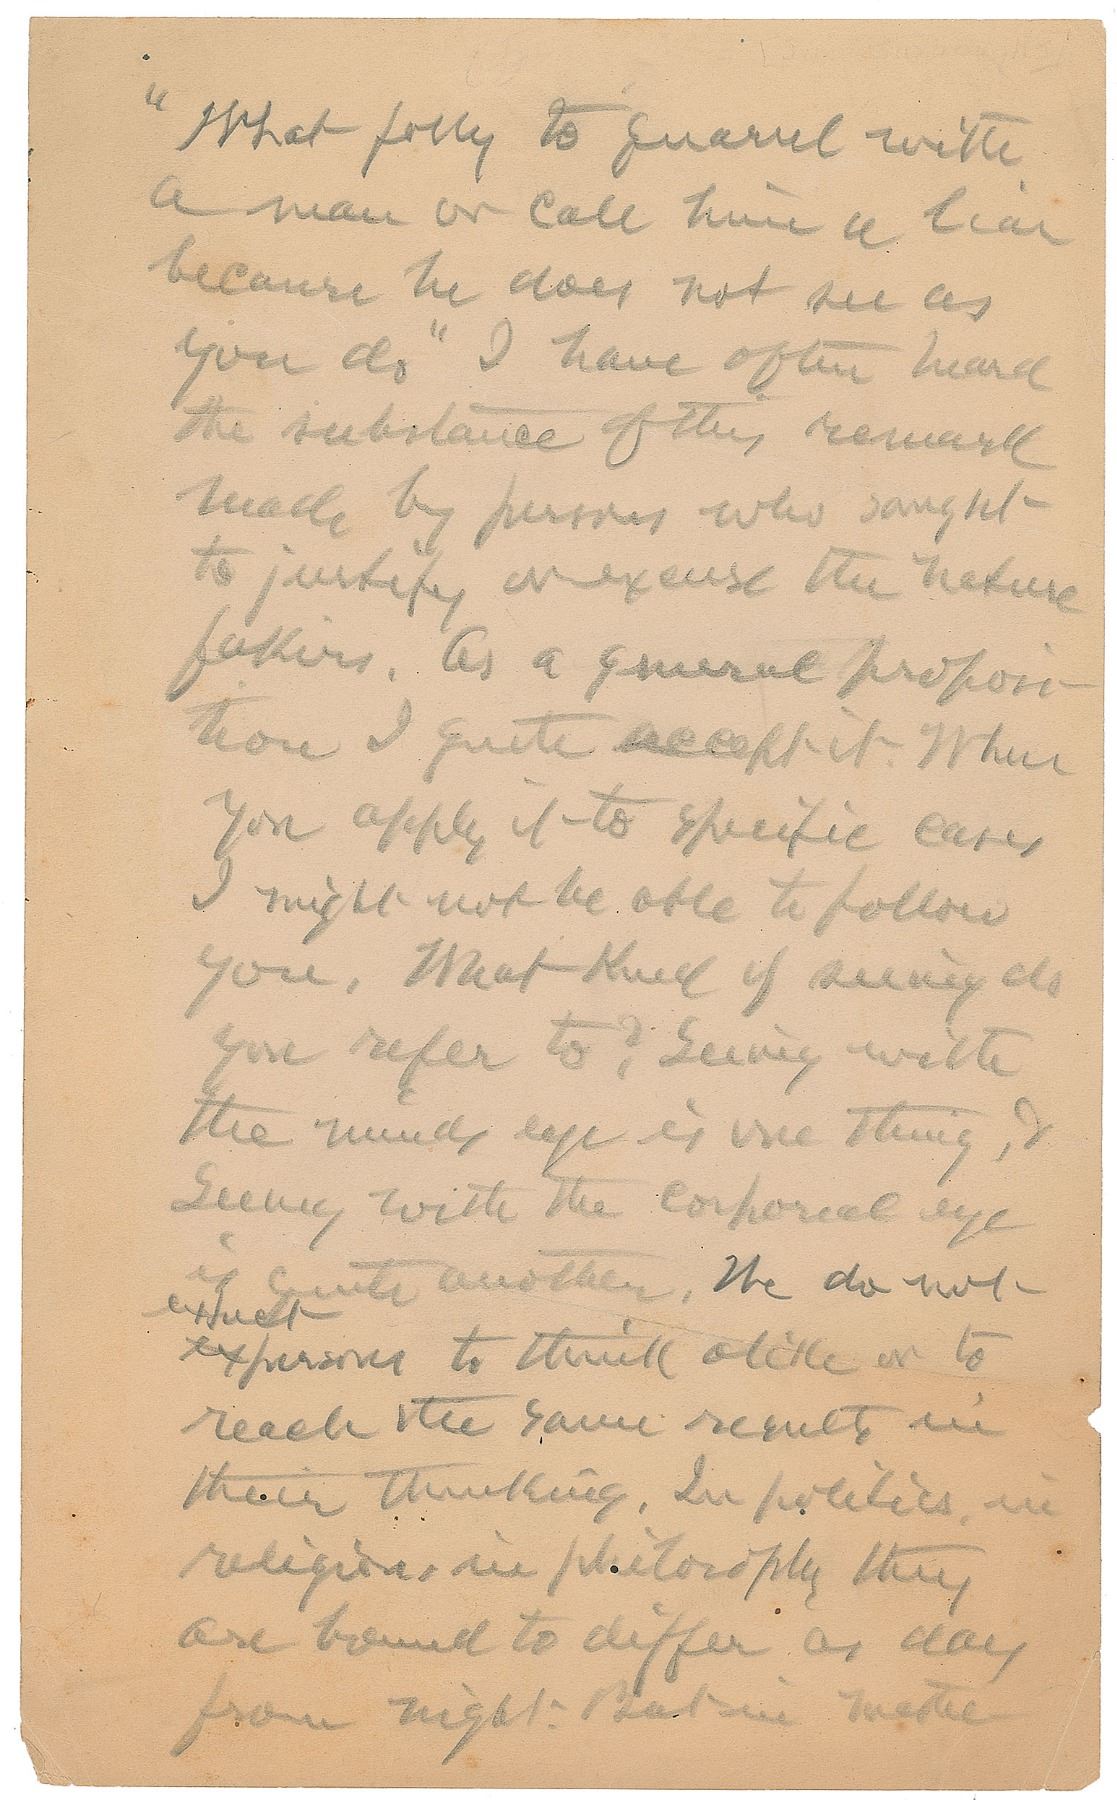 "What folly to quarrel with
a man or call him a liar
because he does not see as
you do" I have often heard
the substance of this remark
made by persons who sought
to justify or excuse the nature
fakirs. As a general proposi-
tion I quite accept it. When
you apply it to specific cases
I might not be able to follow
you. What kind of seeing do
you refer to? Seeing with
the minds eye is one thing, &
Seeing with the corporeal eye
is quite another. We do not
expect
persons to think alike or to
reach the same results in
their thinking. In politics, in
religion, in philosophy they
are bound to differ as day
from night. But in matte